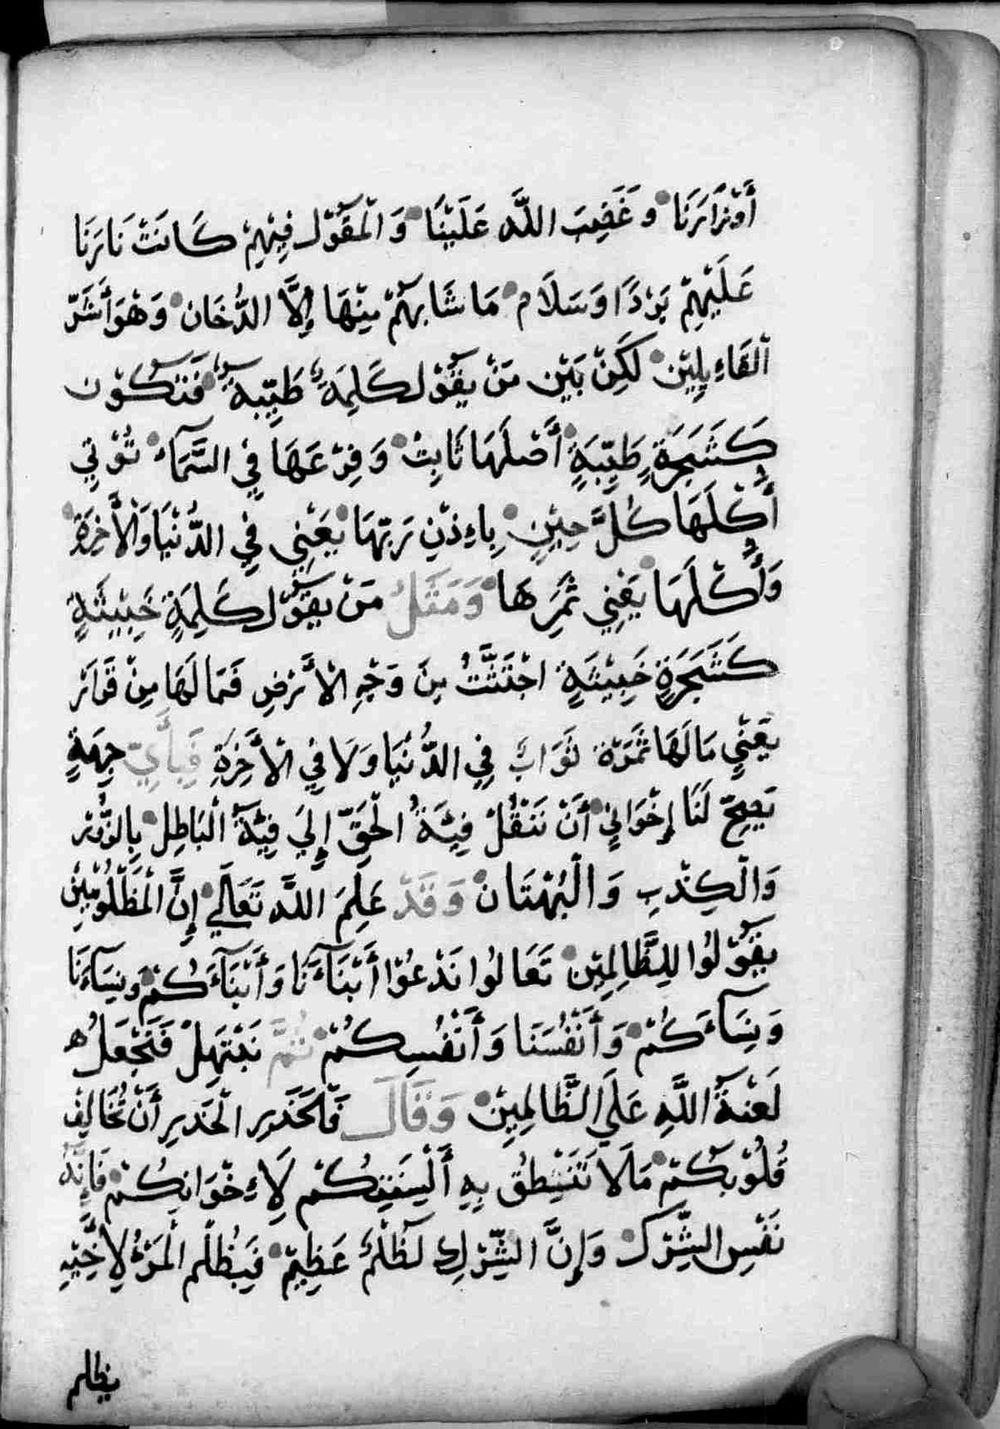 أَوْزَارَنَا وَغَضِبَ اللَّه عَلَيْنَا وَالْمَقُوْل فِيْهِمْ كَانَتْ نَارَنَا
عَلَيْهِمْ بَرْدًا وَسَلَام مَا شَابَهُمْ مِنْهَا إِلَّا الدُّخَان وَهُوَ أَشَرّ
الْقَاءِيلِيْن لَكِنْ بَيْن مَنْ يَقُوْل كَلِمَةً طَيِّبَةً فَتَكُوْن
كَشَجَرَةٍ طَيِّبَةٍ أَصْلَهَا ثَابِتْ وَفِرْعَهَا فِي السَّمَآء تُوْتِي
أُكْلَهَا كُلَّ حِيْنٍ بِاءِذْنِ رَبِّهَا يَعْنِي فِي الدُّنْيَا وَالْأَخِرَة
وَأُكْلَهَا يَعْنِي ثَمَرِهَا وَمَثَلُ مَنْ يَقُوْل كَلِمَةٍ خَبِيْثَةٍ
كَشَجَرَةٍ خَبِيْثَةٍ اجْتَثَّتْ مِنَ وَجْهِ الْأَرْضِ فَمَا لَهَا مِنْ قَرَار
يَعْنِي مَا لَهَا ثَمَرَة ثَوَابٌ فِي الدُّنْيَا وَلَا فِي الْأَخِرَةِ فَبِأَيِّ جِهَةٍ
يَصِحّ لَنَا إِخْوَانِي أَنْ نَنْقُلْ فِيْئَةُ الْحَقّ إِلَي فِيْئَةُ الْبَاطِل بِالزُّوْر
وَالْكِذْبِ وَالْبُهْتَان وَقَدْ عَلِمَ اللَّه تَعَالَي إِنَّ الْمَظْلُوْمِيْن
يَقُوْلُوا لِلظَّالِمِيْن تَعَالُوا نَدْعُوْا أَبْنَآءَنَا وَأَبْنَآءَكُمْ وَنِسَآءَنَا
وَنِسَآءَكُمْ وَأَنْفُسَنَا وَأَنْفُسِكُمْ ثُمَّ نَبْتَهِلْ فَنَجْعَلُ
لَعْنَةُ اللَّهِ عَلَي الظَّالِمِيْن وَقَالَ فَالْحَذَرِ الْحَذَرِ أَنْ تُخَالِفْ
قُلُوْبِكُمْ مَا لَا تَنْطُقْ بِهِ أَلْسِنَتِكُمْ لِاءِخْوَانِكُمْ فَإِنَّهُ
نَفْسِ الشِّرْك وَإِنَّ الشِّرْكِ لَظُلْمٌ عَظِيْمٌ فَيُظْلَم الْمَرْءُ لِأَخِيْهِ
يظلم